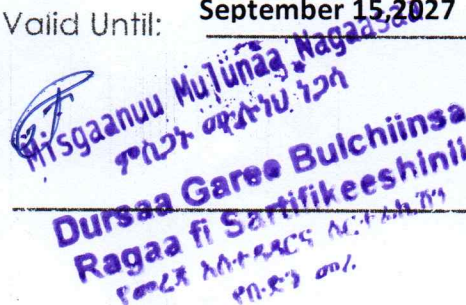 Valid Until: September 15,2027
Misgaanuu Mulunaa Nagaasaa
ምስጋኑ ሙሉነህ ነጋሳ
Dursaa Garee Bulchiinsa
Ragaa fi Sartifikeeshinii
የመረጃ አስተዳደር
የቡድን መሪ